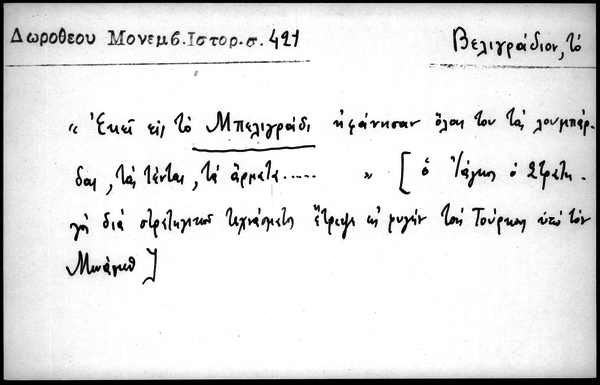 Δωροθεου Μονεμβ.Ιστορ.σ. 421
Βελιγράδιον, τὸ
« Ἐκεῖ εἰς τὸ Μπελιγράδι ἠφάνησαν ὅλαι του ταὶς λουμπάρ-
δαι, ταὶς τένται, τὰ ἄρματα...... » [ὁ Ἰάγκος ὁ Στρατη-
γὸς διὰ στρατηγικοῦ τεχνάσματος ἔτρεψε εἰς φυγὴν τοὺς Τούρκους ὑπὸ τὸν
]